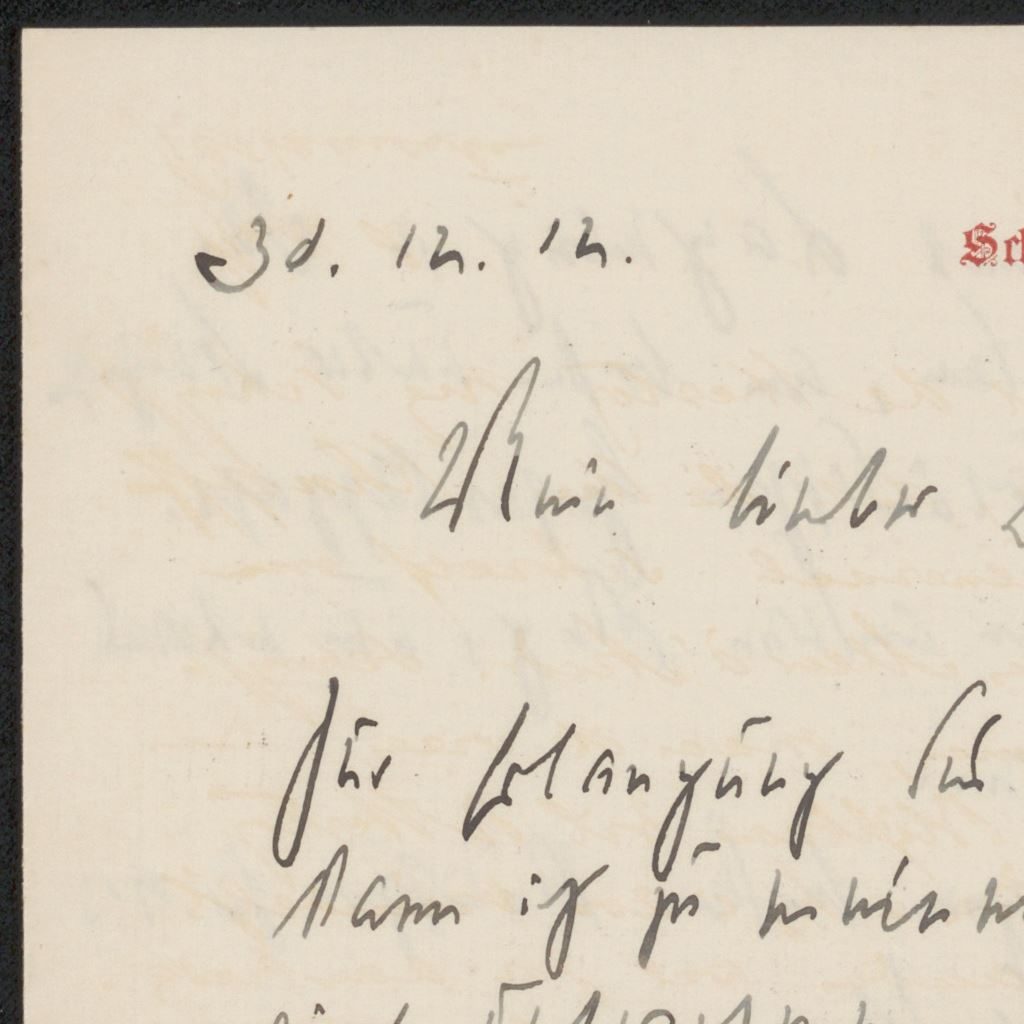 30. 12. 12.
Sch
Mein lieber
Zur Erlangung
kann ich zu meinem